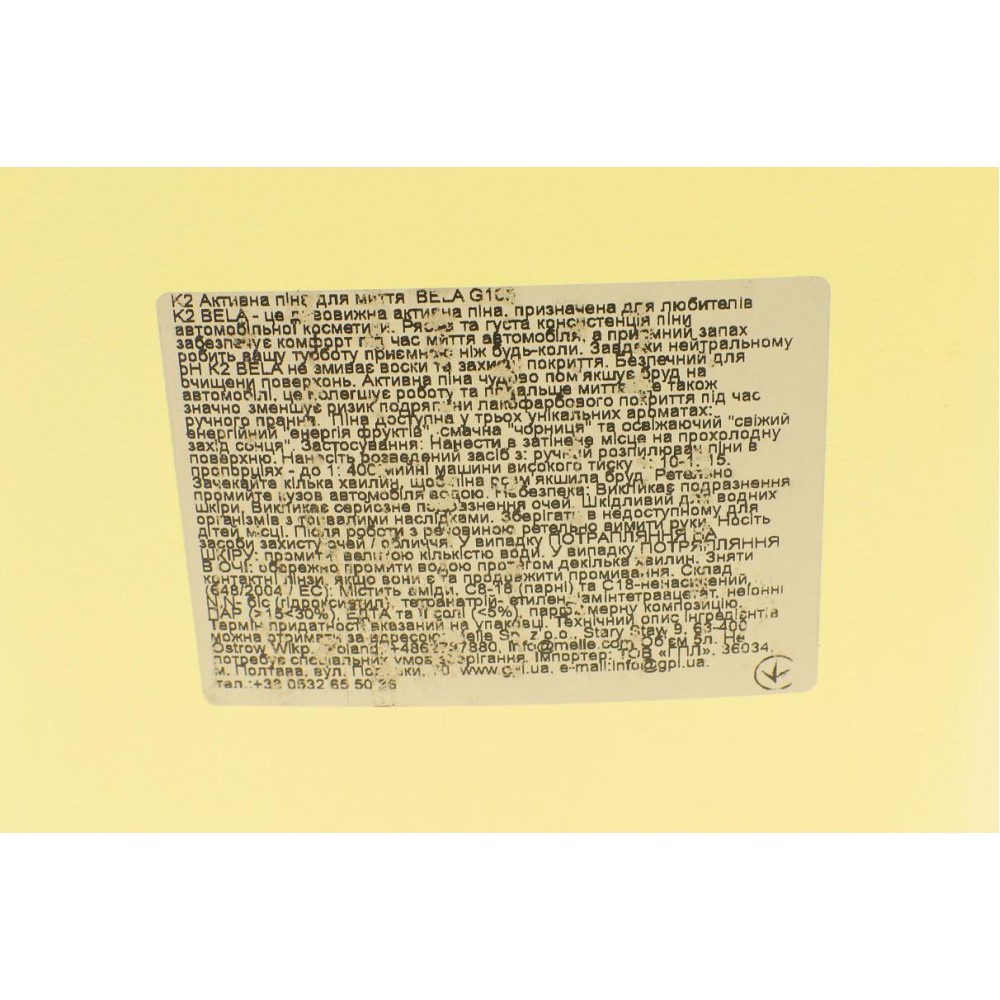 K2 Активна піна для миття BELA
K2 BELA - це дивовижна активна піна, призначена для любителів
автомобільної косметики. Рясна та густа консистенція піни
забезпечує комфорт під час миття автомобіля, а приємний запах
робить вашу турботу приємною ніж будь-коли. Завдяки нейтральному
pH K2 BELA не змиває воски та захисні покриття. Безпечний для
очищени поверхонь. Активна піна чудово пом'якшує бруд на
автомобілі, це полегшує роботу та подальше миття, це також
значно зменшує ризик подряпини лакофарбового покриття під час
ручного прання. Піна доступна у трьох унікальних ароматах:
енергійний "енергія фруктів", смачна "чорниця" та освіжаючий "свіжий
захід сонця". Застосування: Нанести в затінене місце на прохолодну
поверхню. Нанесіть розведений засіб з: ручний розпилювач піни в
пропорціях - до 1: 400, мийні машини високого тиску 1: 10-1: 15.
Зачекайте кілька хвилин, щоб піна розм'якшила бруд. Ретельно
промийте кузов автомобіля водою. Небезпека: Викликає подразнення
шкіри. Викликає серйозне подразнення очей. Шкідливий для водних
організмів з тривалими наслідками. Зберігати в недоступному для
дітей місці. Після роботи з речовиною ретельно вимити руки. Носіть
засоби захисту очей / обличчя. У випадку ПОТРАПЛЯННЯ НА
ШКІРУ: промити великою кількістю води. У випадку ПОТРАПЛЯННЯ
В ОЧІ: обережно промити водою протягом декілька хвилин. Зняти
контактні лінзи, якщо вони є та продовжити промивання. Склад
(648/2004 / EC): Містить аміди, C8-18 (парні) та C18-ненасичений,
N, N- біс (гідроксиетил), тетранатрій- етилен, амінтетраацетат, неіонні
ПАР (>15<30%), ЕДТА та її солі (<5%), парфумерну композицію.
Термін придатності вказаний на упаковці. Технічний опис інгредієнтів
можна отримати за адресою: Melle Sp. z o.o., Stary Staw 9, 63-400
Ostrow Wlkp, Poland, info@melle.com. Об'єм 5л. Не
потребує спеціальних умов зберігання. Імпортер: ТОВ «ГПЛ», 36034,
м. Полтава, вул. www.gpl.ua, e-mail:info@gpl.ua,
тел.:+38 0532 65 50 36